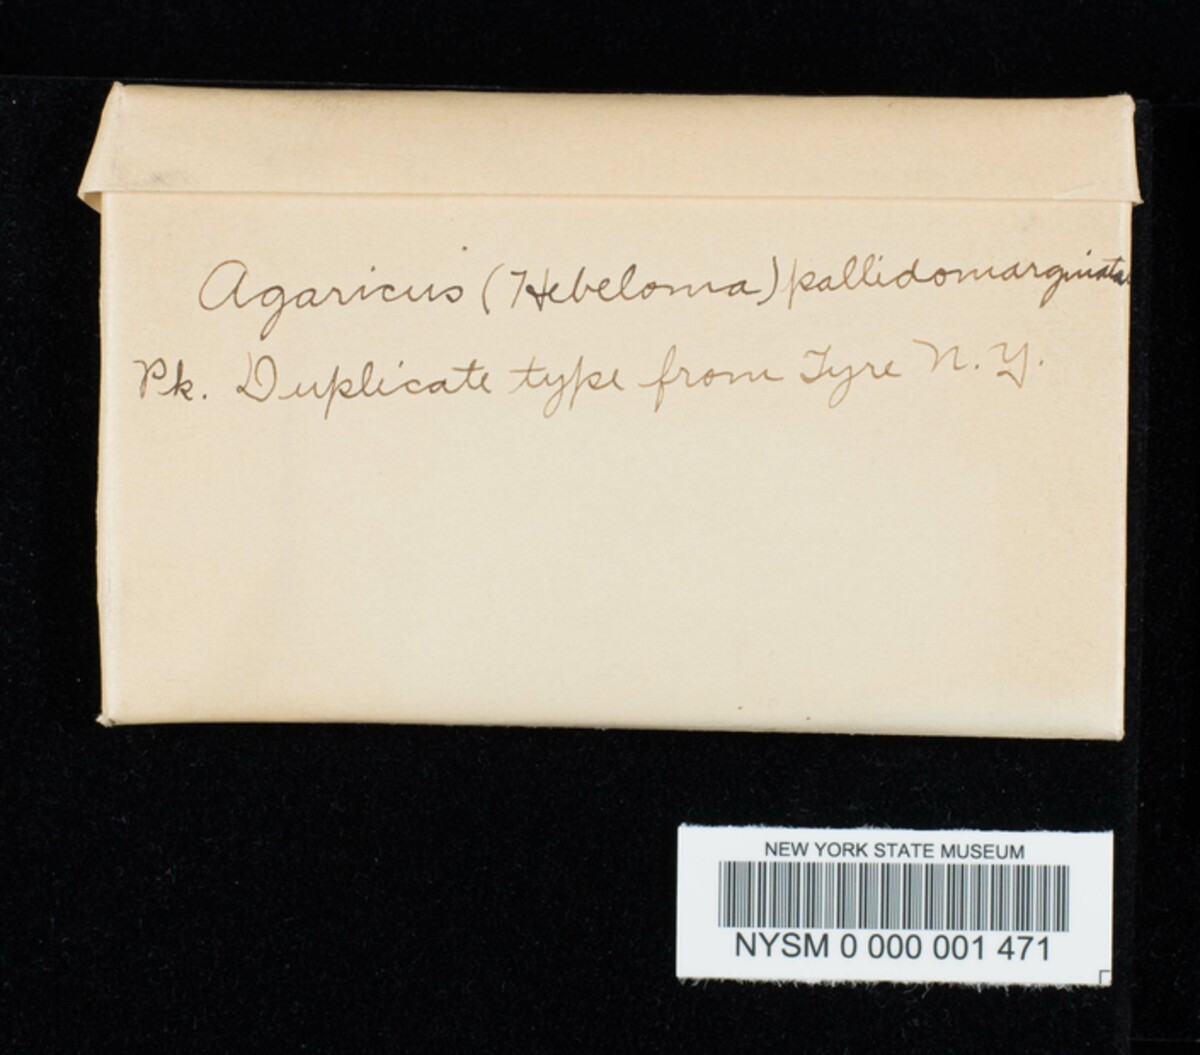 Agaricus (Hebeloma) pallidomarginata
Pk. Duplicate type from Tyre N.Y.
NEW YORK STATE MUSEUM
NYSM 0 000 001 471